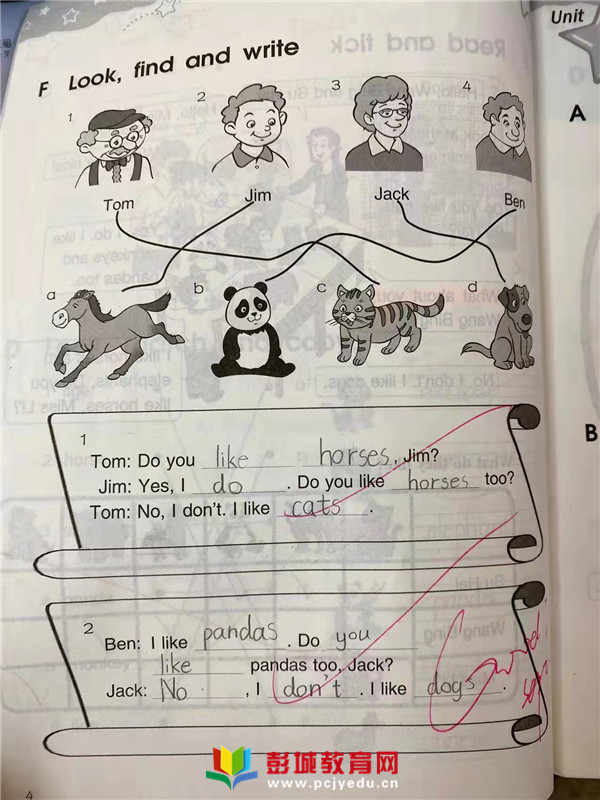 Unit
F Look, find and write
A
1 2 3 4
Tom Jim Jack Ben
a b c d
B
1
Tom: Do you like horses, Jim?
Jim: Yes, I do. Do you like horses too?
Tom: No, I don't. I like cats.
2
Ben: I like pandas. Do you
like pandas too, Jack?
Jack: No, I don't. I like dogs.
彭城教育网
www.pcjyedu.cn
4